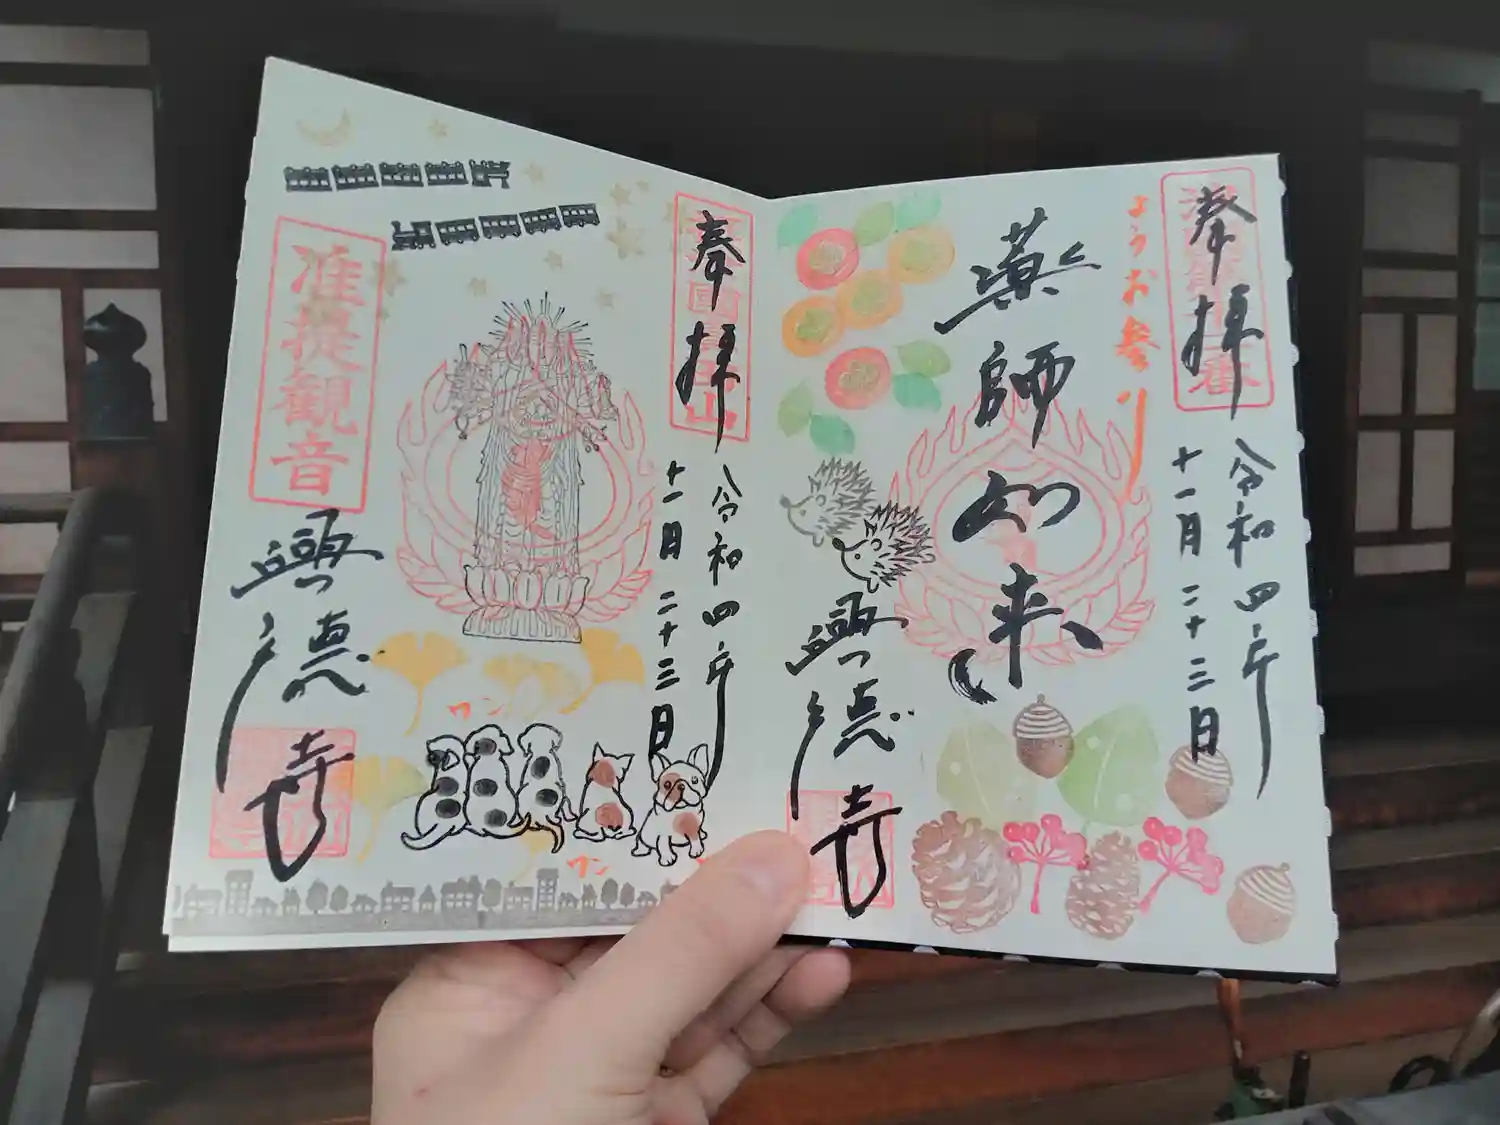 奉拝
令和四年
十一月二十三日
ようお参り
薬師如来
興徳寺
奉拝
令和四年
十一月二十三日
准提観音
興徳寺
ワン
ワン